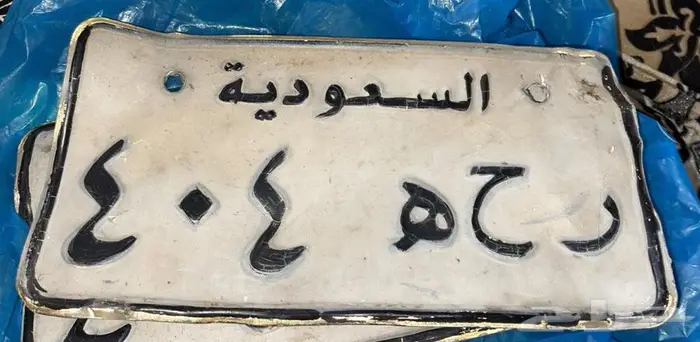 السعودية
ر ح ه ٤٠٤